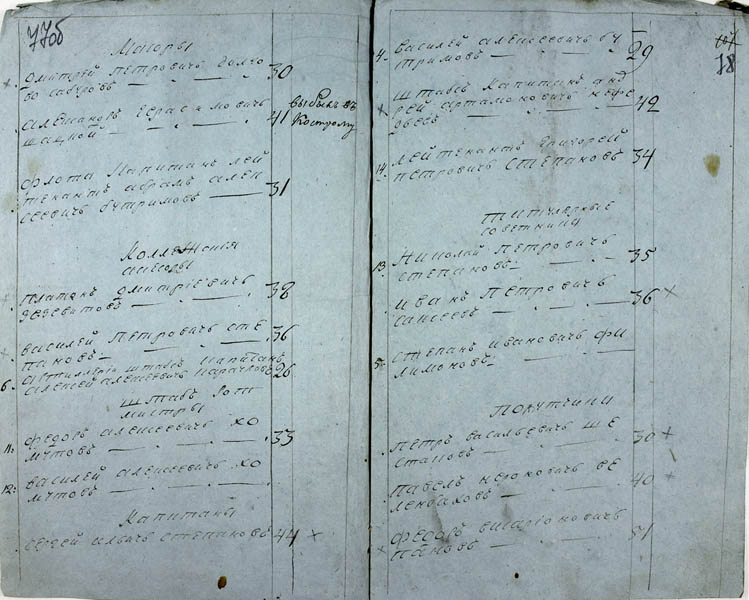 77об
Маiоры
Дмитрей Петровичь Долго
во сабуровъ 30
Александръ Герасимовичь
41 выбылъ въ
Кострому
Флота Капитанъ лей
тенантъ абрамъ алек
сеевичь бутримовъ 31
Коллежскiя
асесоры
Платонъ Дмитрiевичь
38
Василей Петровичь сте
пановъ 36
6. Артиллерiи штабсъ Капитанъ
алексей алексеевичь 26
штабъ Рот
мистры
11. Федоръ алексеевичь хо
мутовъ 33
12. Василей алексеевичь хо
мутовъ
Капитаны
сергей ильичь степановъ 44 ×
78
4. Василей алексеевичь бу
тримовъ 29
× штабсъ Капитанъ анд
рей артамоновичь
42
14. лейтенантъ григорей
петровичь степановъ 34
титулярные
советники
13. Николай Петровичь
степановъ 35
Иванъ Петровичь
36 ×
5. степанъ ивановичь фи
лимоновъ
Порутчики
Петръ васильевичь ше
30 +
Павелъ
40 +
Федоръ
пановъ 51